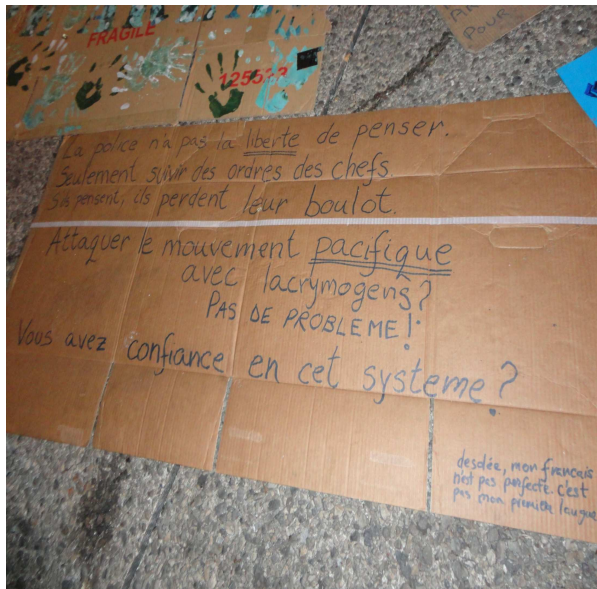 FRAGILE
125533
POUR
La police n'a pas la liberte de penser.
Seulement suivir des ordres des chefs.
S'ils pensent, ils perdent leur boulot.
Attaquer le mouvement pacifique
avec lacrymogens?
PAS DE PROBLEME!
Vous avez confiance en cet systeme?
desdée, mon francais
n'est pas perfecte. c'est
pas mon première langue